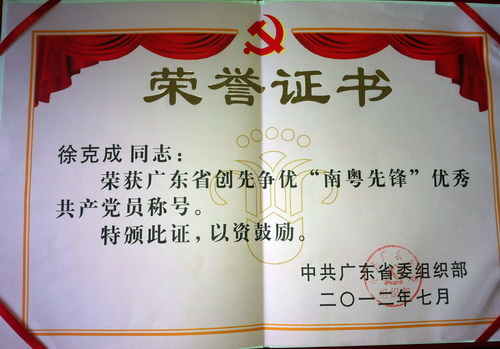 荣誉证书
徐克成同志：
荣获广东省创先争优“南粤先锋”优秀
共产党员称号。
特颁此证，以资鼓励。
中共广东省委组织部
二〇一二年七月